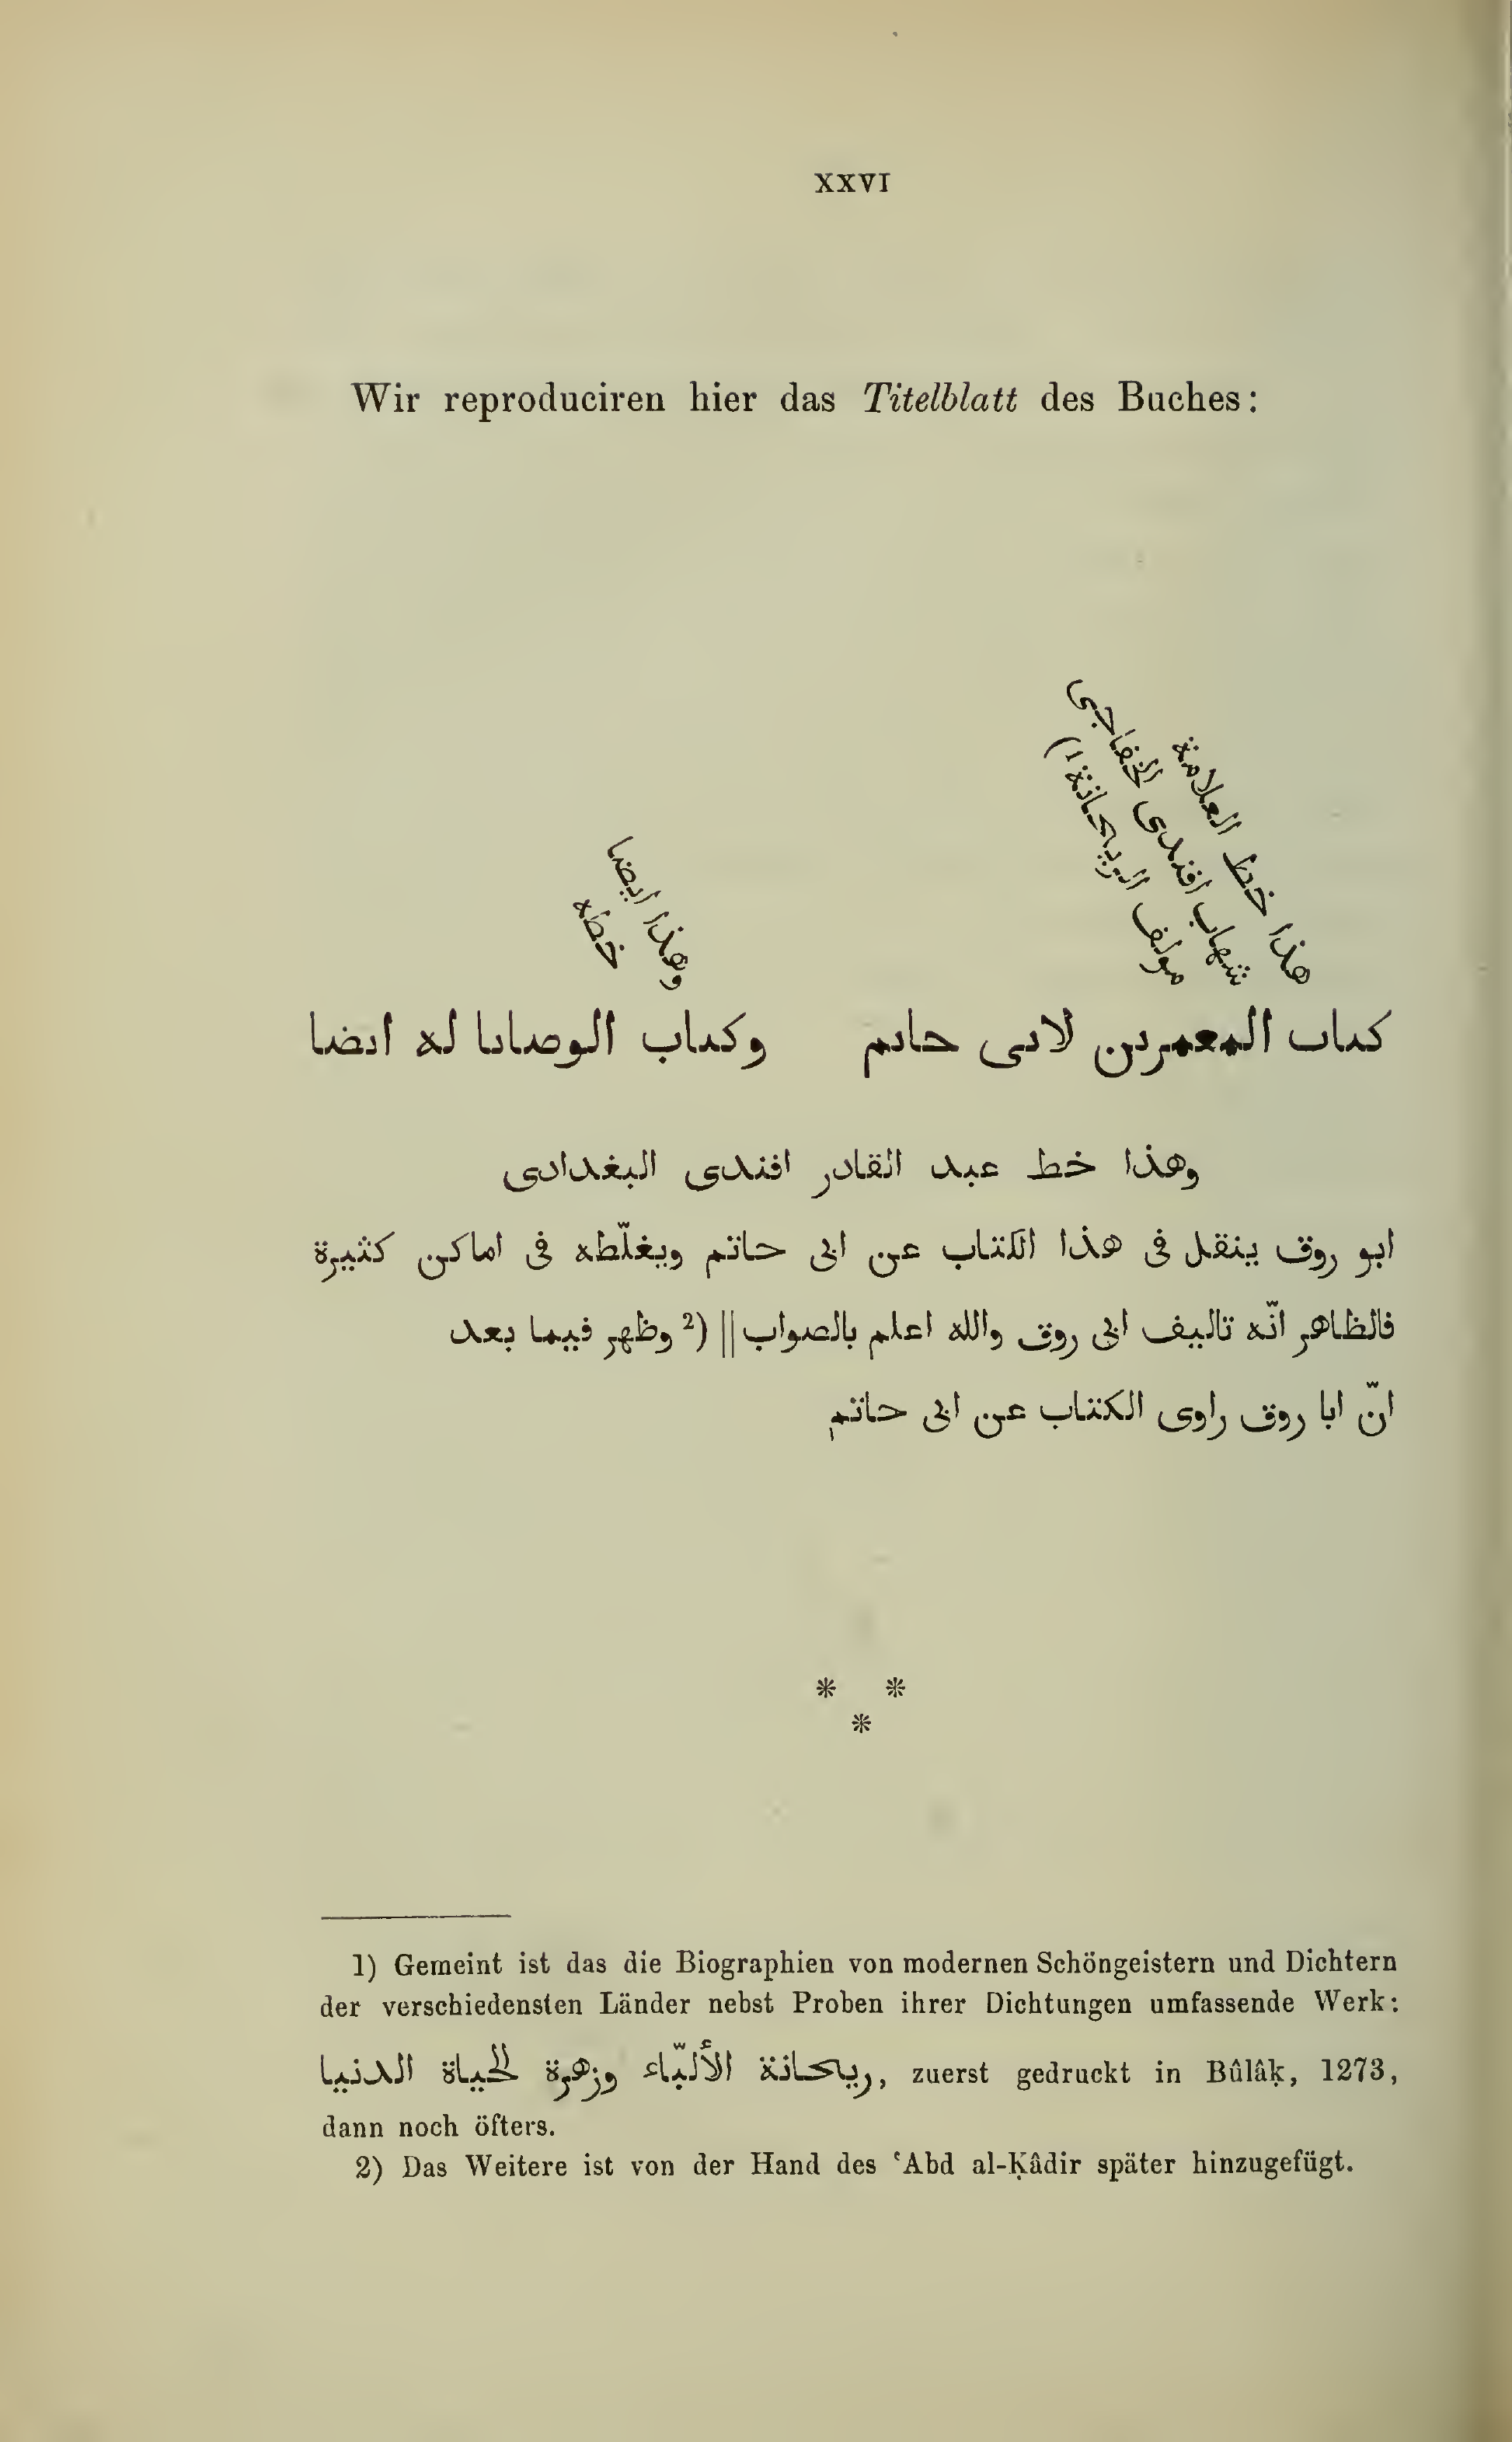 XXVI
Wir reproduciren hier das Titelblatt des Buches:
هذا خط العلامة
شهاب افندى الخفاجى
مولف الريحانة (1
وهذا ايضا
خطه
كتاب المعمرين لابى حاتم وكتاب الوصايا له ايضا
وهذا خط عبد القادر افندى البغدادى
ابو روق ينقل فى هذا الكتاب عن ابى حاتم ويغلّطه فى اماكن كثيرة
فالظاهر انّه تاليف ابى روق والله اعلم بالصواب || (2 وظهر فيما بعد
انّ ابا روق راوى الكتاب عن ابى حاتم
* *
*
1) Gemeint ist das die Biographien von modernen Schöngeistern und Dichtern
der verschiedensten Länder nebst Proben ihrer Dichtungen umfassende Werk:
ريحانة الألبّاء وزهرة الحياة الدنيا, zuerst gedruckt in Bûlâḳ, 1273,
dann noch öfters.
2) Das Weitere ist von der Hand des ʿAbd al-Ḳâdir später hinzugefügt.